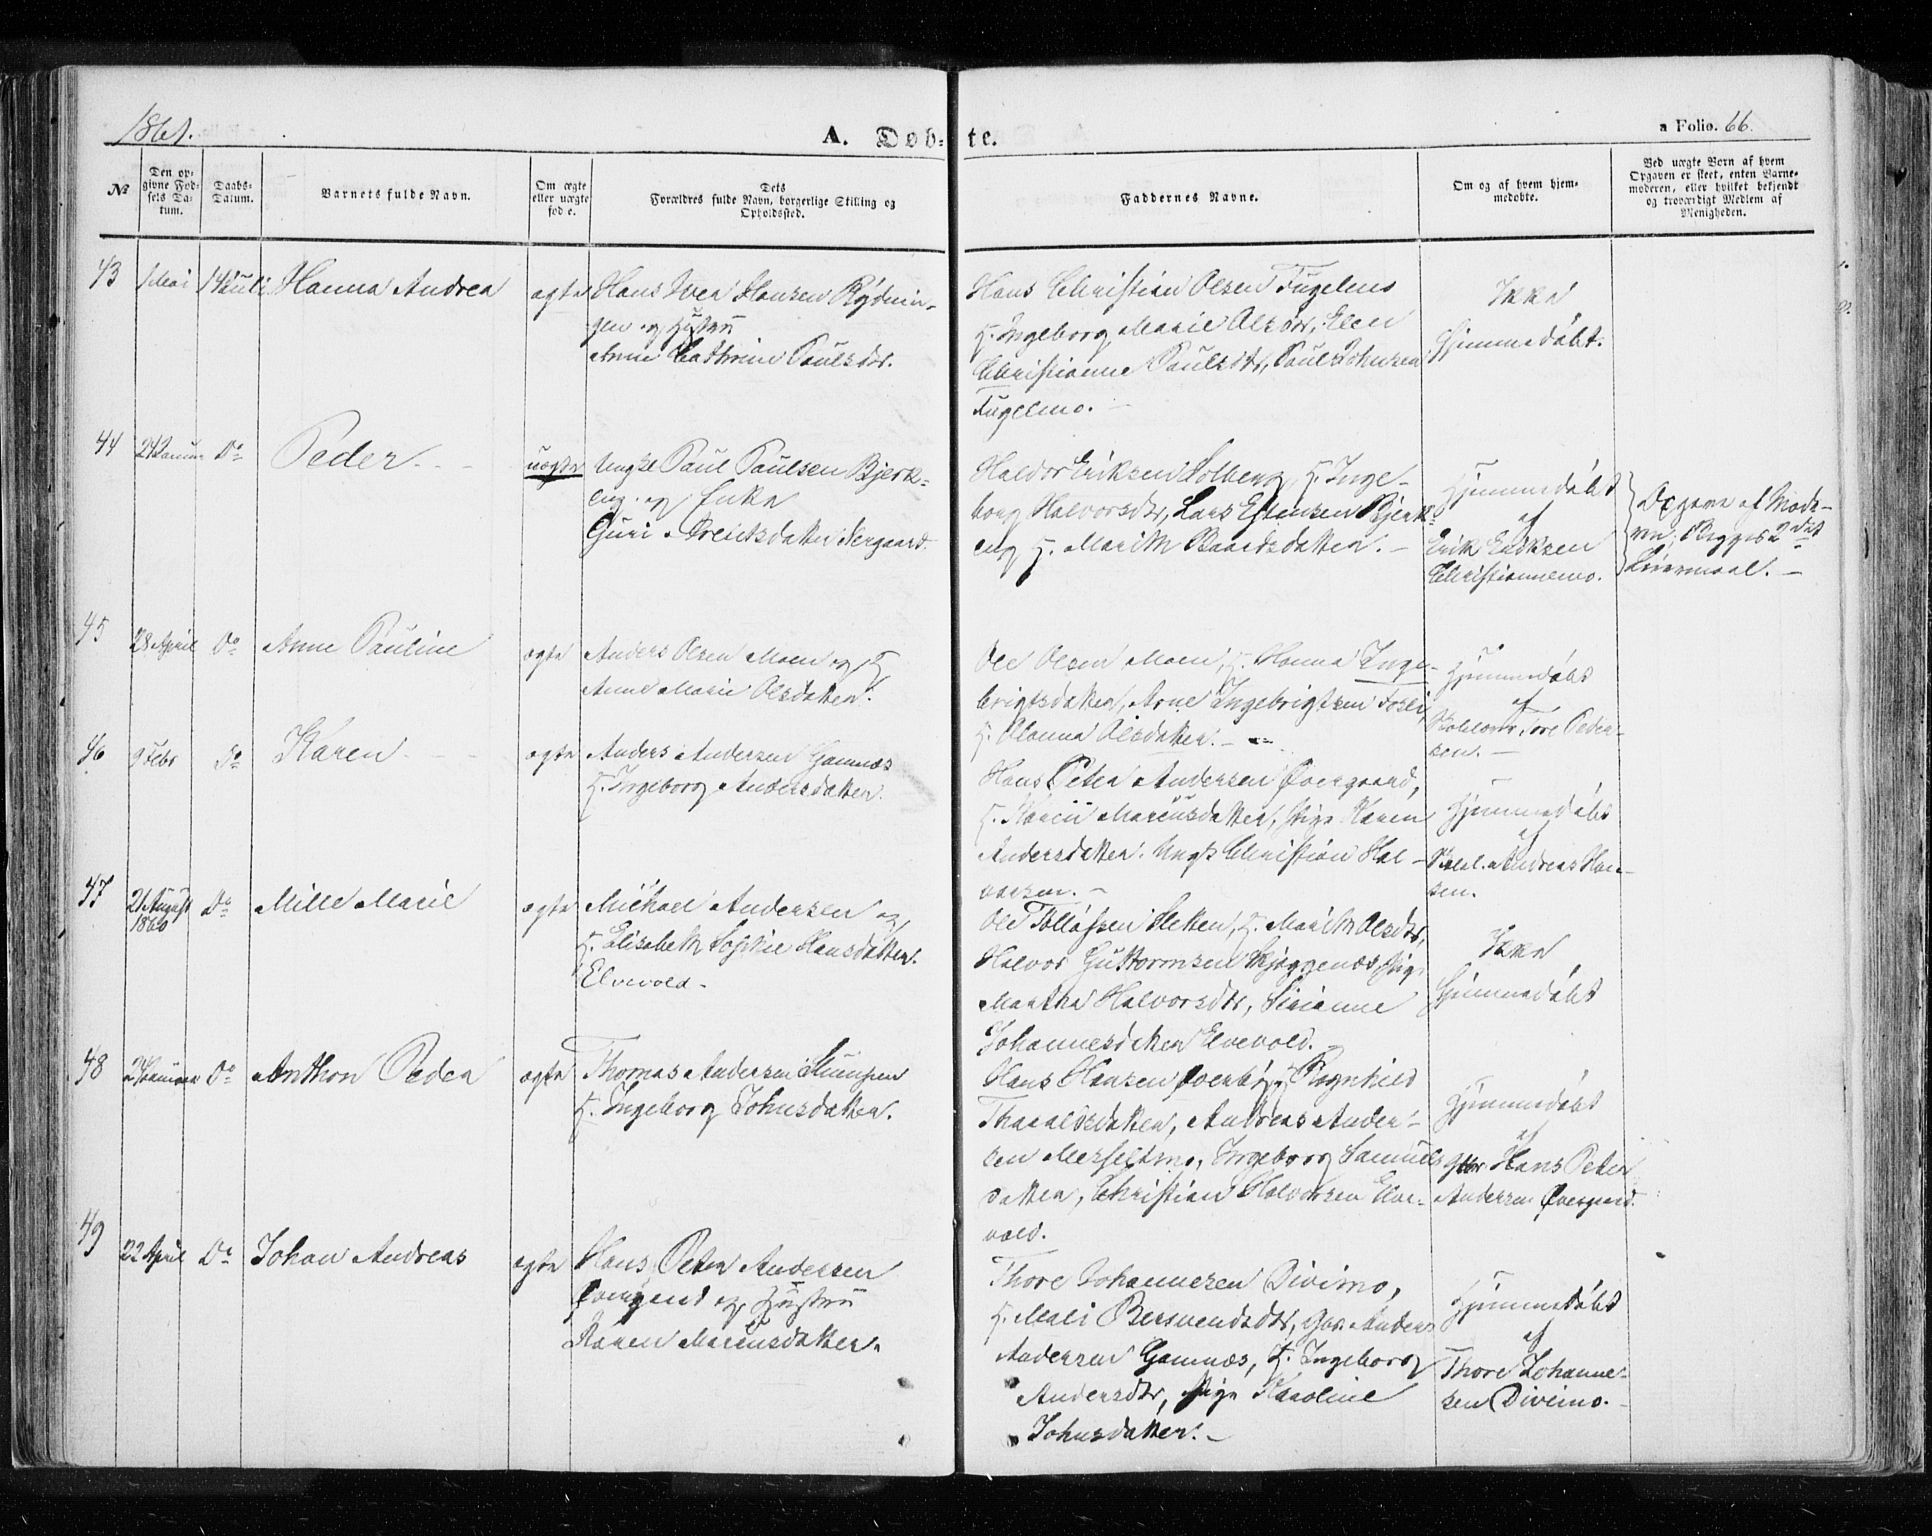 1861.
A. Døb-
te.
a Folio. 66.
No
Den op-
givne Fød-
sels Da-
tum.
Daabs-
Datum.
Barnets fulde Navn.
Om ægte
eller uægte
født.
Dets
Forældres fulde Navn, borgerlige Stilling og
Opholdssted.
Faddernes Navne.
Om og af hvem hjem-
medøbte.
Ved uægte Børn af hvem
Opgaven er skeet, enten Barne-
moderen, eller hvilket bekjendt
og troværdigt Medlem af
Menigheden.
43
1 Mai
14 Juli
Hanna Andrea
ægte
Hans Hansen Rydnin-
gen og Hustru
Anne Cathrine Paulsdtr.
Hans Christian Olsen Fugelmo
H. Ingeborg Marie Olsdtr, Elen
Christianne Paulsdtr, Paul Johnsen
Fugelmo. -
Ikke
Hjemmedøbt.
44
24 Januar
Do
Peder. - -
uægte
Ungk. Paul Paulsen Bjerk-
eng. og Enke
Guri Nergaard.
Haldor Eriksen Solberg, H. Inge-
borg Halvorsdtr, Lars Estensen Bjerk-
eng H. Marith Baardsdatter. -
Hjemmedøbt
af
Erik Eriksen
Christiannemo.
Opgave af Mode-
ren; Begges 2det
Leiermaal. -
45
28 April
Do
Anne Pauline
ægte
Anders Olsen Moen og H.
Anne Marie Olsdatter.
Ole Olsen Moen, H. Hanna Inge-
brigtsdatter, Arne Ingebrigtsen Fosli,
H. Olsdatter. -
Hjemmedøbt
af
Tore Peder-
sen. -
46
9 Febr
Do
Karen - - -
ægte
Anders Andersen Gamnæs
H. Ingeborg Andersdatter.
Hans Peter Andersen Øvergaard,
H. Karen Marcusdatter, Pige Karen
Andersdatter. Ungk. Christian Hal-
vorsen. -
Hjemmedøbt
af
Andreas Han-
sen.
47
21 August
1860
Do
Mille Marie
ægte
Michael Andersen og
H. Elisabeth Sophie Hansdatter.
Elvevold -
Ole Tollefsen Sletten, H. Marith Olsdtr,
Halvor Guttormsen Skjæggenæs, Pige
Martha Halvorsdtr,
Johannesdatter Elvevold. -
Ikke
Hjemmedøbt
48
Do
Anthon Peder
ægte
Thomas Andersen
H. Ingeborg Johnsdatter.
Hans Hansen Øverby, Ragnhild
Tharaldsdatter, Andreas Ander-
sen Ingeborg Samuels
datter, Christian Halvorsen Elve-
vold.
Hjemmedøbt
af
Hans Peter
Andersen Øvergaard.
49
22 April
Do
Johan Andreas
ægte
Hans Peter Andersen
Øvergaard og Hustru
Karen Marcusdatter.
Thore Johannesen Divimo,
H. Mali Bersvendsdtr, Anders
Andersen Gamnæs, H. Ingeborg
Andersdtr, Pige Karoline
Johnsdatter. -
Hjemmedøbt
af
Thore Johanne-
sen Divimo. -